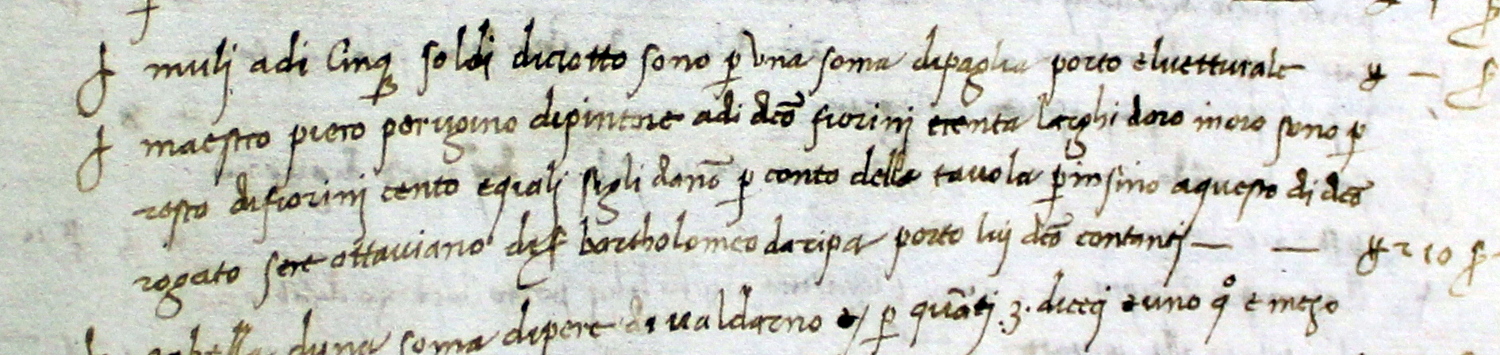 muli adi Cinq soldi diciotto sono p una soma dipaglia porto elvetturale
maestro piero perugino dipintore adi dcō fiorini trenta larghi doro inoro sono p
resto difiorini cento equali segli danō p conto della tavola p insino aquesto di dcō
rogato sere ottaviano di s bartholomeo daripa porto lui dcō contantj — — 210
duna soma dipere di valdarno p quātj 3. diecj e uno qº e mezo